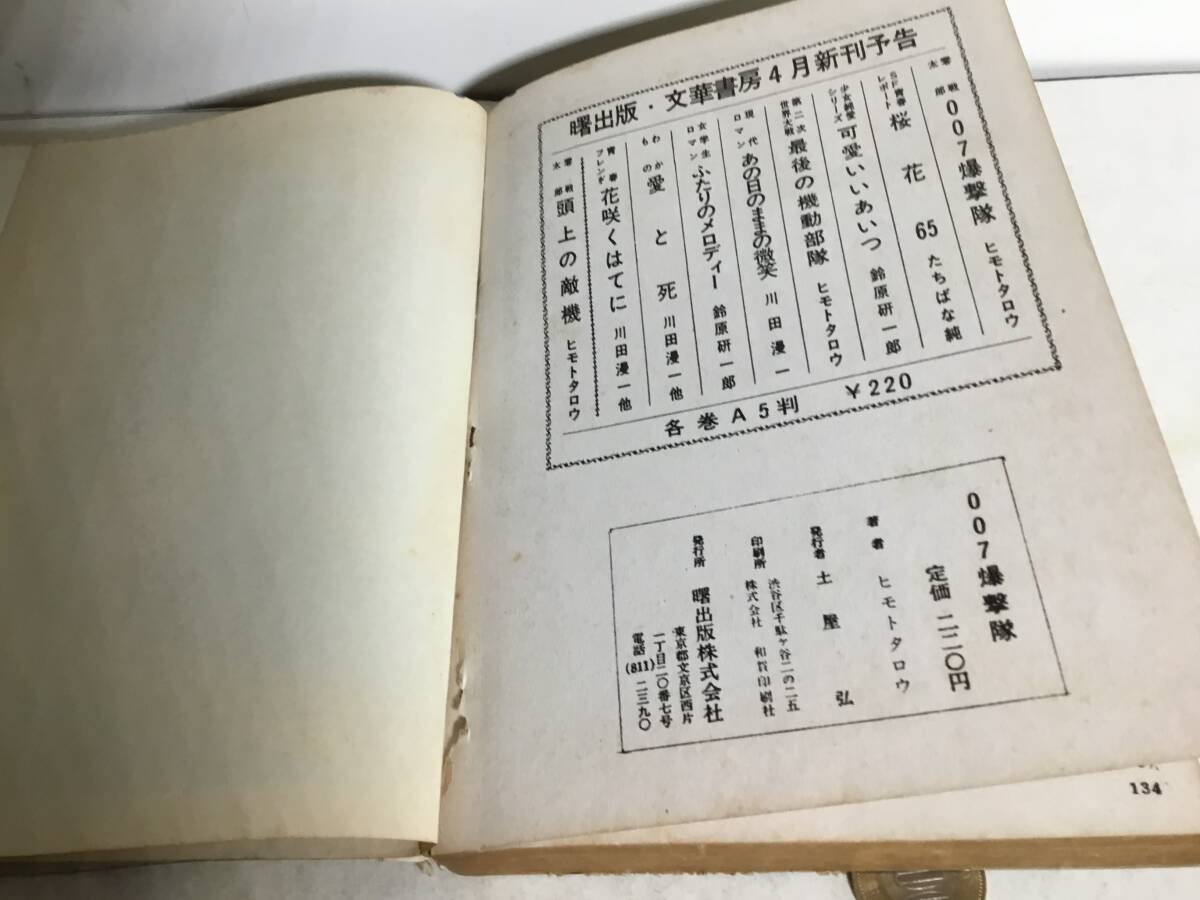 曙出版・文華書房4月新刊予告
零戦太郎 007爆撃隊 ヒモトタロウ
レポート 桜花65 たちばな純
少女純愛シリーズ 可愛いいあいつ 鈴原研一郎
第二次世界大戦 最後の機動部隊 ヒモトタロウ
現代ロマン あの日のままの微笑 川田漫一
女学生ロマン ふたりのメロディー 鈴原研一郎
わかもの 愛と死 川田漫一他
青春フレンド 花咲くはてに 川田漫一他
零戦太郎 頭上の敵機 ヒモトタロウ
各巻A5判 ¥220
007爆撃隊
定価 二二〇円
著者 ヒモトタロウ
発行者 土屋弘
印刷所 渋谷区千駄ヶ谷二の二五
株式会社 和貿印刷社
発行所 曙出版株式会社
東京都文京区西片
一丁目二〇番七号
電話(811)二三九〇
134